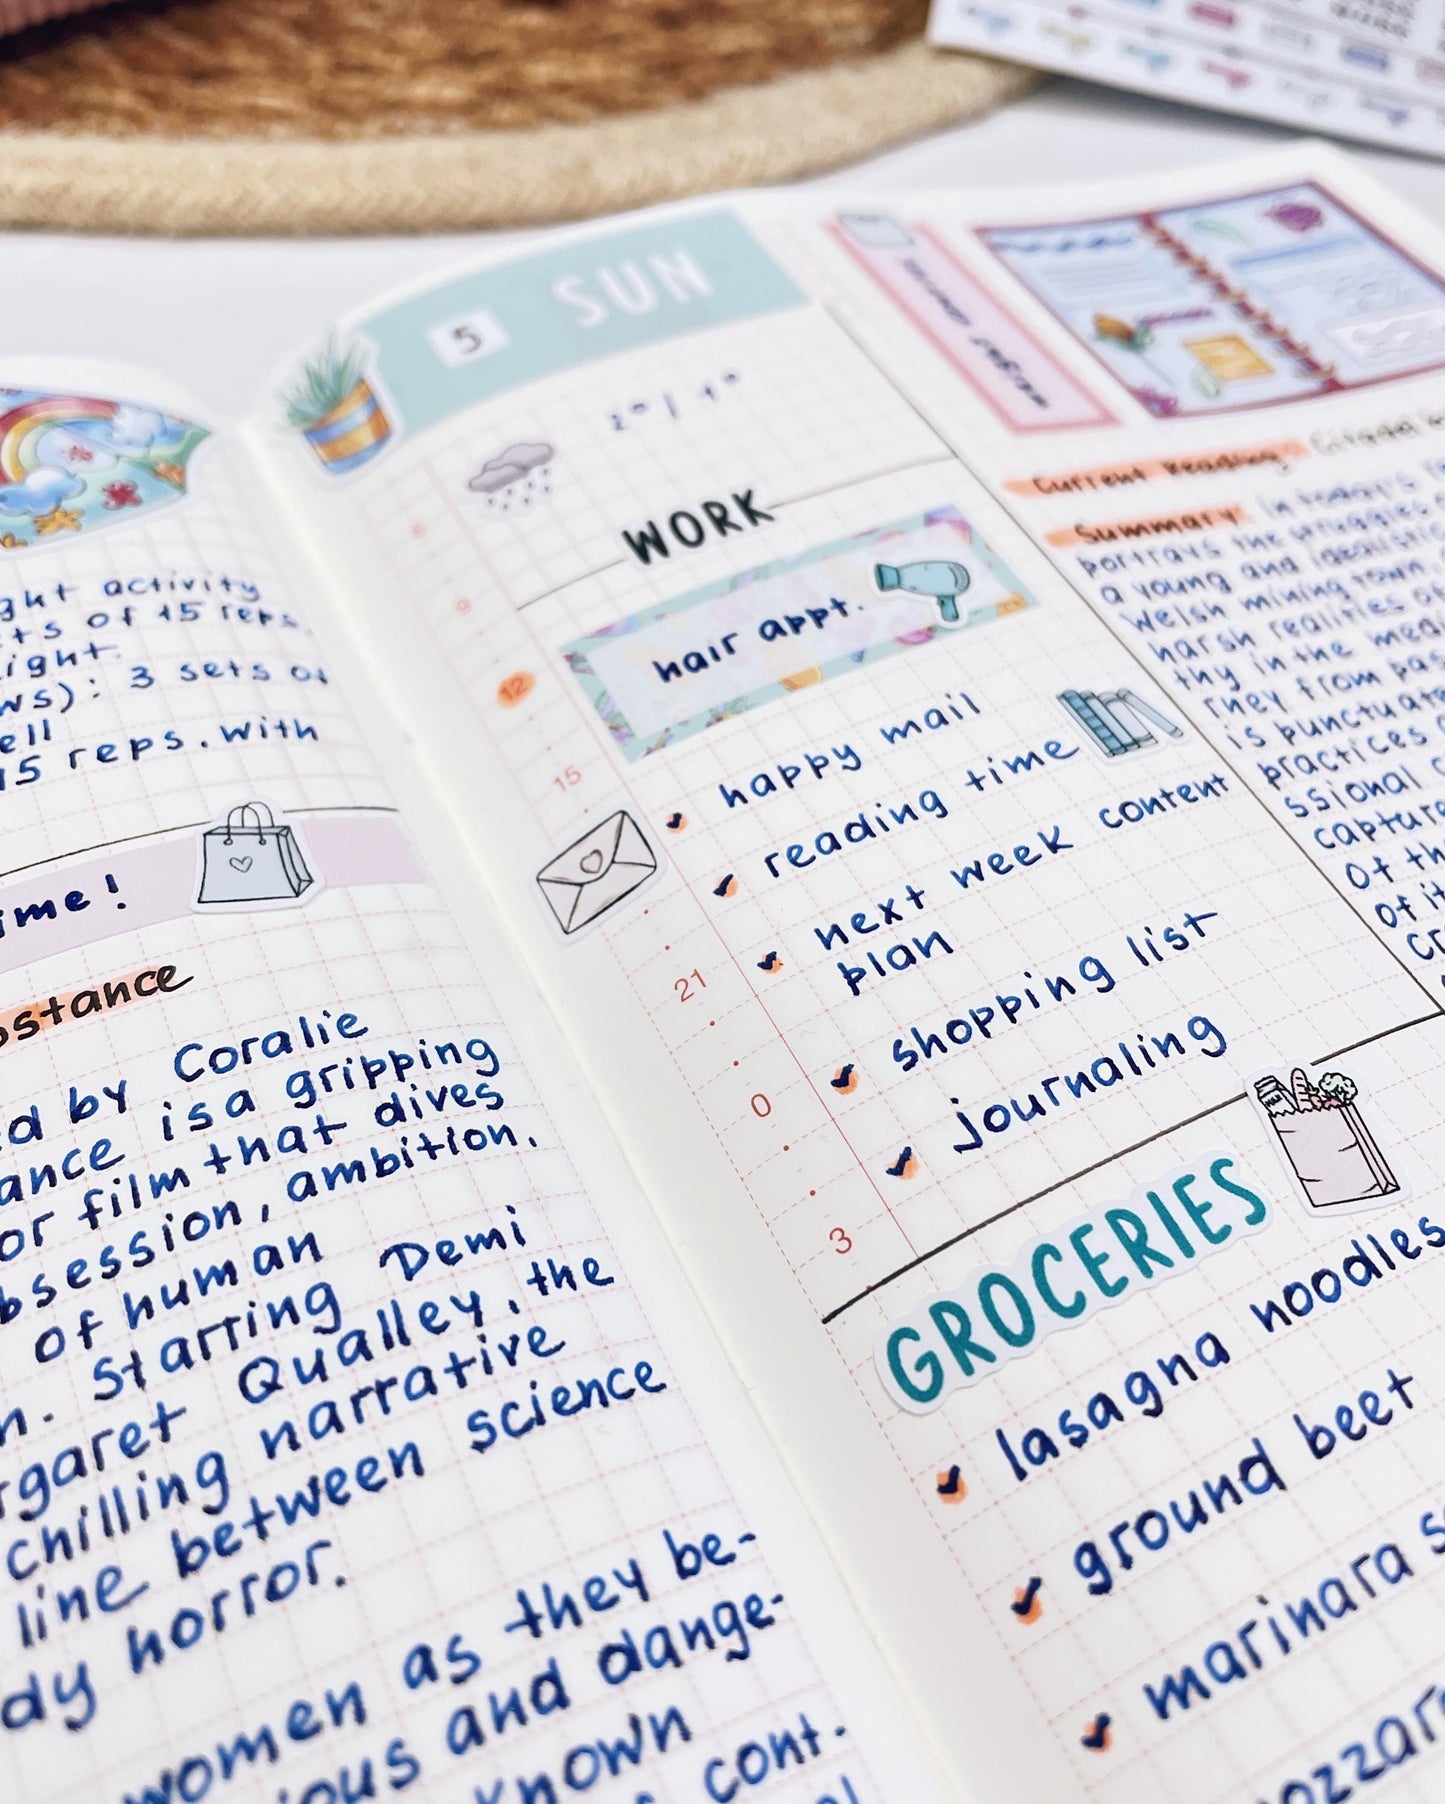 ght activity
ts of 15 reps.
ight.
ws): 3 sets of
ell
15 reps. with
ime!
bstance
ed by Coralie
ance is a gripping
or film that dives
bsession, ambition,
of human
n. Starring Demi
rgaret Qualley, the
chilling narrative
line between science
dy horror.
women as they be-
ious and dange-
known
cont.
5 SUN
WORK
hair appt.
9
12
15
21
0
3
happy mail
reading time
next week content
plan
shopping list
journaling
GROCERIES
lasagna noodles
ground beet
marinara s
ozzar
Current Reading: Citadel
Summary: In today's
portrays the struggles
a young and idealistic
Welsh mining town.
harsh realities
thy in the medi
rney from pas
is punctuate
practices
ssional
capture
of th
of it
cr